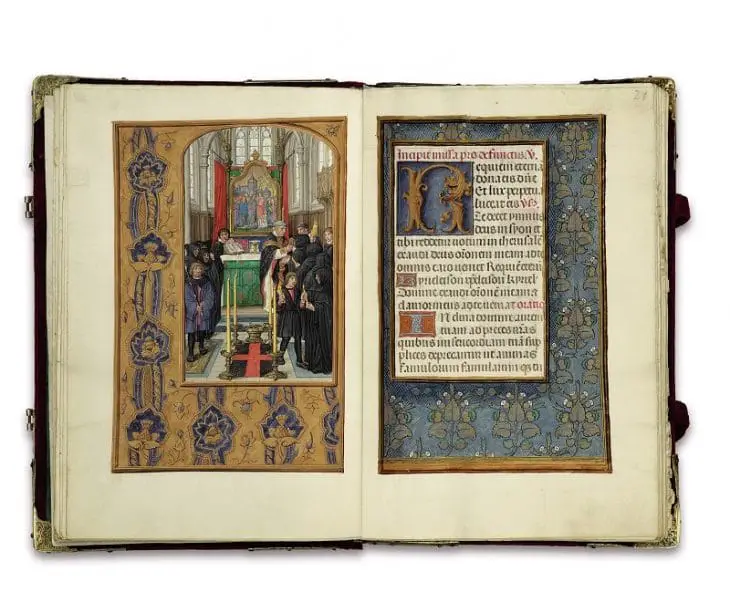 Incipit missa pro defunctis.
Requiem eternā
dona eis dñe
Et lux perpetu
luceat eis
Te decet ymnus
deus in syon et
tibi reddetur votum in iherusalē
exaudi deus orōnem meam ad te
omnis caro veniet Requiē etern
Kyrieleison xpeleison Kyriel
Domine exaudi orōnē meam &
clamor meus ad te veniat oratio
Inclina domine aurem
tuam ad preces nr̄as
quibus misericordiam tuā sup
plices deprecamur ut animas
famulorum famularum